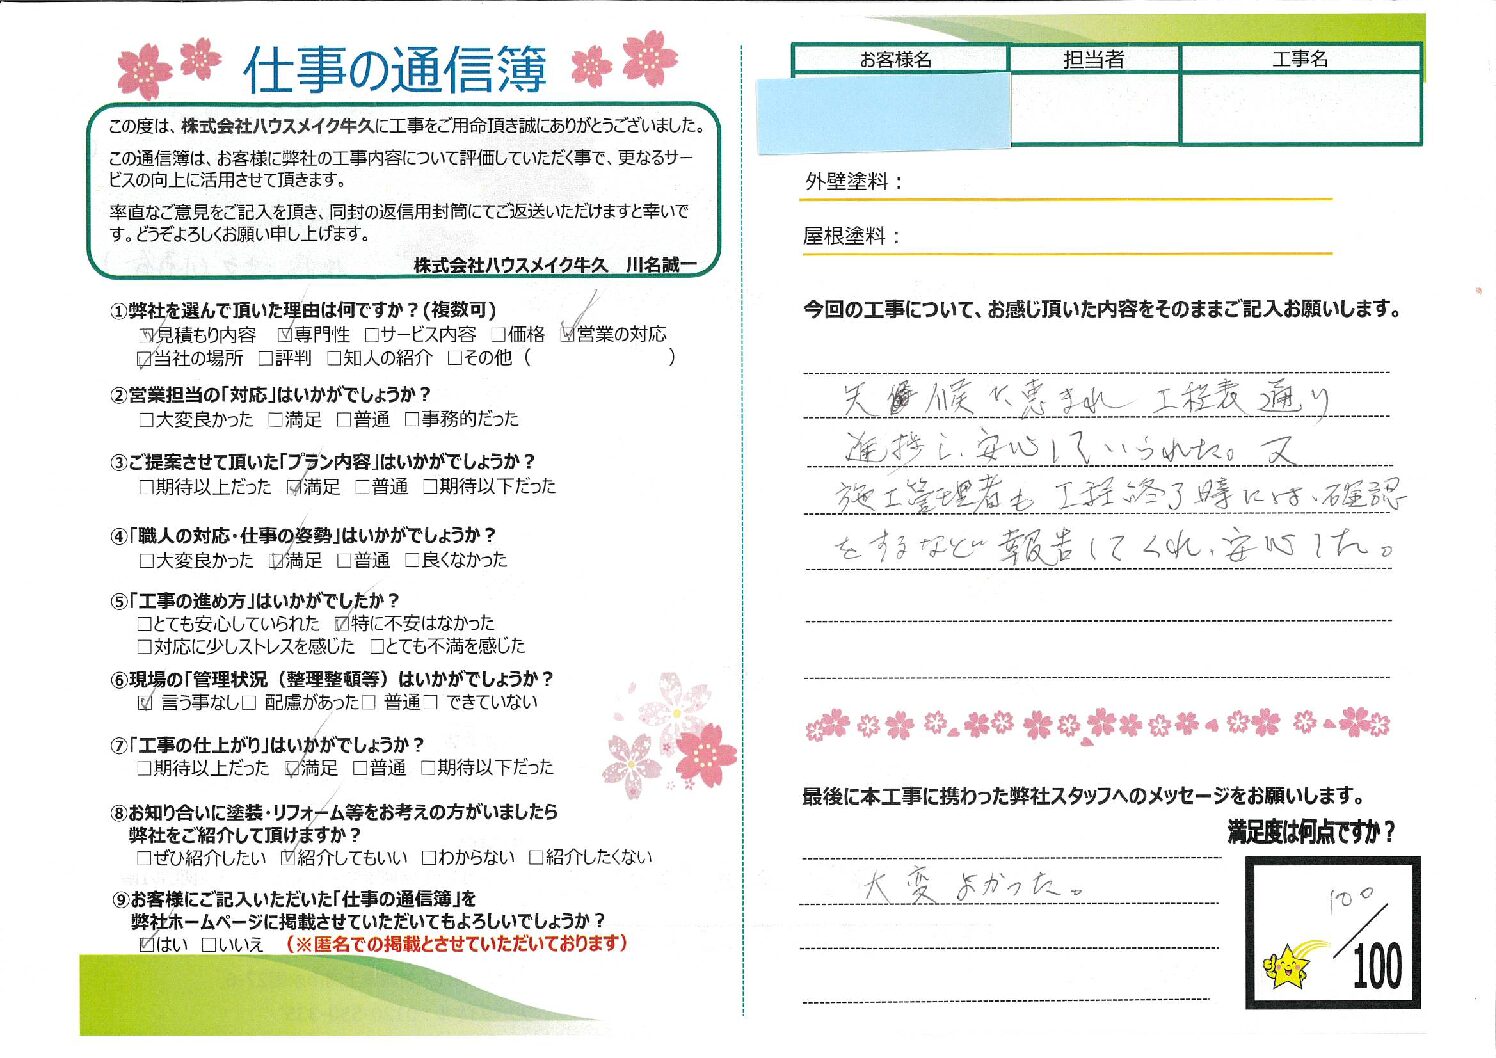 仕事の通信簿
この度は、株式会社ハウスメイク牛久に工事をご用命頂き誠にありがとうございました。
この通信簿は、お客様に弊社の工事内容について評価していただく事で、更なるサー
ビスの向上に活用させて頂きます。
率直なご意見をご記入を頂き、同封の返信用封筒にてご返送いただけますと幸いで
す。どうぞよろしくお願い申し上げます。
株式会社ハウスメイク牛久 川名誠一
①弊社を選んで頂いた理由は何ですか？(複数可)
☑見積もり内容 ☑専門性 □サービス内容 □価格 ☑営業の対応
☑当社の場所 □評判 □知人の紹介 □その他（ ）
②営業担当の「対応」はいかがでしょうか？
□大変良かった □満足 □普通 □事務的だった
③ご提案させて頂いた「プラン内容」はいかがでしょうか？
□期待以上だった ☑満足 □普通 □期待以下だった
④「職人の対応・仕事の姿勢」はいかがでしょうか？
□大変良かった ☑満足 □普通 □良くなかった
⑤「工事の進め方」はいかがでしたか？
□とても安心していられた ☑特に不安はなかった
□対応に少しストレスを感じた □とても不満を感じた
⑥現場の「管理状況（整理整頓等）はいかがでしょうか？
☑ 言う事なし□ 配慮があった□ 普通□ できていない
⑦「工事の仕上がり」はいかがでしょうか？
□期待以上だった ☑満足 □普通 □期待以下だった
⑧お知り合いに塗装・リフォーム等をお考えの方がいましたら
弊社をご紹介して頂けますか？
□ぜひ紹介したい ☑紹介してもいい □わからない □紹介したくない
⑨お客様にご記入いただいた「仕事の通信簿」を
弊社ホームページに掲載させていただいてもよろしいでしょうか？
☑はい □いいえ （※匿名での掲載とさせていただいております）
お客様名 担当者 工事名
外壁塗料：
屋根塗料：
今回の工事について、お感じ頂いた内容をそのままご記入お願いします。
天候に恵まれ 工程表通り
進捗し、安心していられた。又
施工管理者も工程終了時には、確認
をするなど報告してくれ、安心した。
最後に本工事に携わった弊社スタッフへのメッセージをお願いします。
満足度は何点ですか？
大変よかった。
100
/100